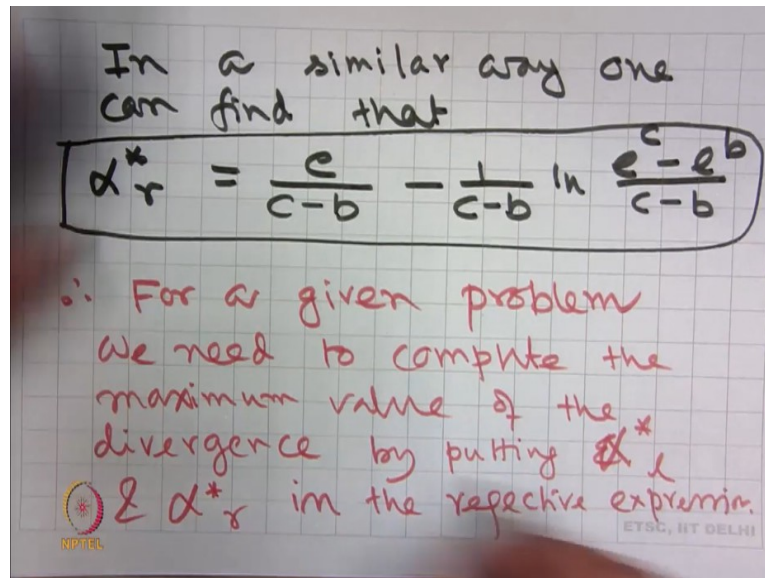 In a similar way one
can find that
α*r = e/(c-b) - 1/(c-b) ln (e^c - e^b)/(c-b)
∴ For a given problem
we need to compute the
maximum value of the
divergence by putting α*l
& α*r in the respective expression.
NPTEL
ETSC, IIT DELHI